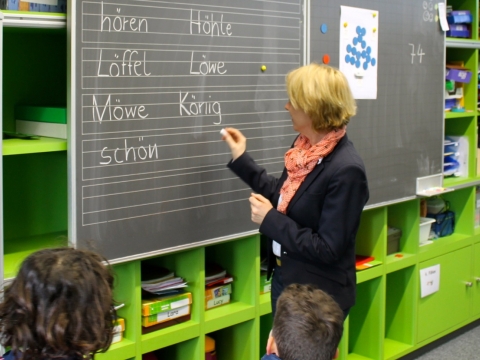 hören Höhle
Löffel Löwe
Möwe Köniig
schön
74